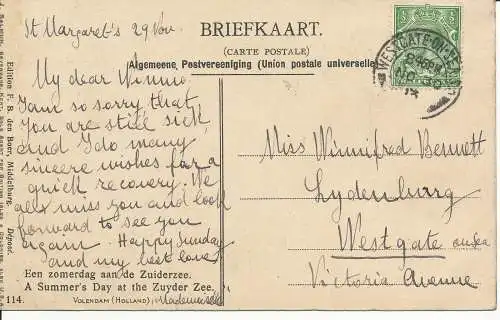 BRIEFKAART.
(CARTE POSTALE)
Algemeene Postvereeniging (Union postale universelle)
St Margaret's 29 Nov
My dear Winnie
I am so sorry that
You are still sick
and I do many
sincere wishes for a
quick recovery. We
all miss you and look
forward to see you
again. Happy Sunday
and my best love
Mademoiselle
Een zomerdag aan de Zuiderzee.
A Summer's Day at the Zuyder Zee.
114.
VOLENDAM (HOLLAND),
Edition F. B. den Boer, Middelburg. Depose.
WESTGATE-ON-SEA
NO 30
14
Miss Winnifred Bennett
Lydenburg
Westgate on Sea
Victoria Avenue